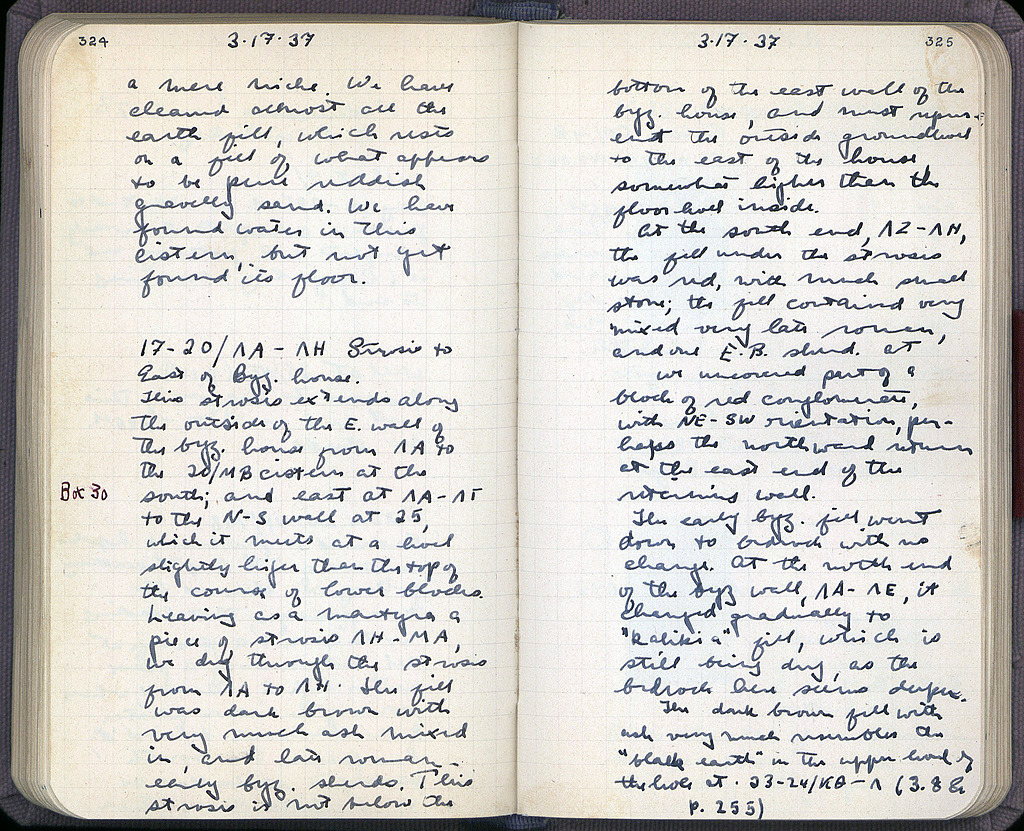 324
3·17·37
a mere niche. We have
cleaned almost all the
earth fill, which rests
on a fill of what appears
to be pure reddish
gravelly sand. We have
found water in this
cistern, but not yet
found its floor.
17-20/ΛΑ-ΛΗ Strosis to
East of Byz. house.
This strosis extends along
the outside of the E. wall of
the byz. house from ΛΑ to
the 20/ΜΒ cistern at the
Bot 30
south; and east at ΛΑ-ΛΓ
to the N-S wall at 25,
which it meets at a level
slightly higer than the top of
the course of lower blocks.
Leaving as a martyra a
piece of strosis ΛΗ-ΜΑ,
we dug through the strosis
from ΛΑ to ΛΗ. The fill
was dark brown with
very much ash mixed
in, and late roman-
early byz. sherds. This
strosis is not below the
3·17·37
325
bottom of the east wall of the
byz. house, and must repres-
ent the outside ground level
to the east of the house,
somewhat higher than the
floor level inside.
At the south end, ΛΖ-ΛΗ,
the fill under the strosis
was red, with much small
stone; the fill contained very
mixed very late roman,
and one E.B. sherd. at
we uncovered part of a
block of red conglomerate,
with NE-SW orientation, per-
haps the northward return
at the east end of the
retaining wall.
The early byz. fill went
down to bedrock with no
change. At the north end
of the byz wall, ΛΑ-ΛΕ, it
changed gradually to
"kalikia" fill, which is
still being dug, as the
bedrock here seems deeper.
The dark brown fill with
ash very much resembles the
"black earth" in the upper level of
the hole at 23-24/ΚΘ-Λ (3.8
p. 255)